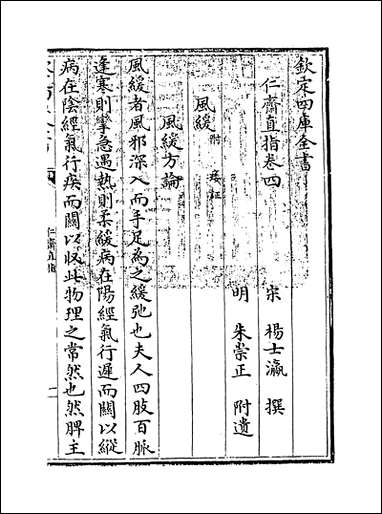 欽定四庫全書
仁齋直指卷四
宋 楊士瀛 撰
明 朱崇正 附遺
風緩 附 證
風緩方論
風緩者風邪深入而手足為之緩弛也夫人四肢百脈
逢寒則攣急遇熱則柔緩病在陽經氣行遲而關以縱
病在陰經氣行疾而關以收此物理之常然也然脾主
仁齋直指